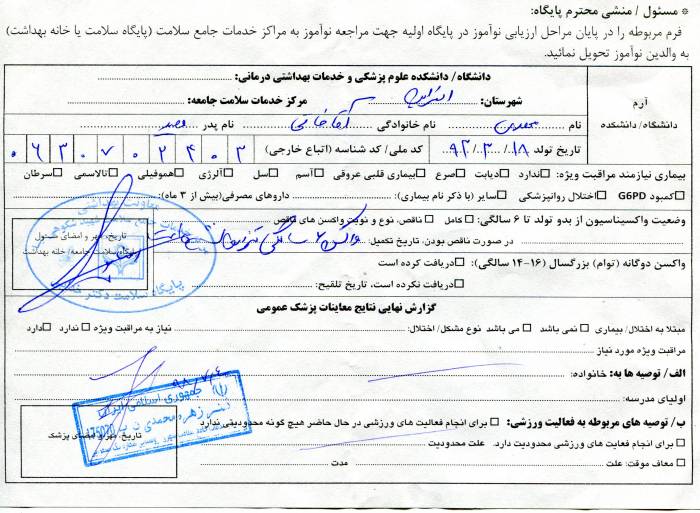 * مسئول / منشی محترم پایگاه:
فرم مربوطه را در پایان مراحل ارزیابی نوآموز در پایگاه اولیه جهت مراجعه نوآموز به مراکز خدمات جامع سلامت (پایگاه سلامت یا خانه بهداشت)
به والدین نوآموز تحویل نمائید.
آرم
دانشگاه/ دانشکده
دانشگاه/ دانشکده علوم پزشکی و خدمات بهداشتی درمانی:
شهرستان: مرکز خدمات سلامت جامعه:
نام نام خانوادگی آقاخانی نام پدر
تاریخ تولد ۹۲/۳/۱۸ کد ملی/ کد شناسه (اتباع خارجی) ۰ ۶ ۳ ۰ ۷ ۰ ۲ ۴ ۰ ۳
بیماری نیازمند مراقبت ویژه: ندارد دیابت صرع بیماری قلبی عروقی آسم سل آلرژی هموفیلی تالاسمی سرطان
کمبود G6PD اختلال روانپزشکی سایر (با ذکر نام بیماری): داروهای مصرفی(بیش از ۳ ماه):
وضعیت واکسیناسیون از بدو تولد تا ۶ سالگی: کامل ناقص، نوع و نوبت واکسن های ناقص
در صورت ناقص بودن، تاریخ تکمیل: واکسن ۶ سالگی
تاریخ، مهر و امضای مسئول
پایگاه سلامت جامعه/ خانه بهداشت
معاونت بهداشتی
پایگاه سلامت دکتر
واکسن دوگانه (توام) بزرگسال (۱۶-۱۴ سالگی): دریافت کرده است
دریافت نکرده است، تاریخ تلقیح:
گزارش نهایی نتایج معاینات پزشک عمومی
مبتلا به اختلال/ بیماری نمی باشد می باشد نوع مشکل/ اختلال: نیاز به مراقبت ویژه ندارد دارد
مراقبت ویژه مورد نیاز
الف/ توصیه ها به: خانواده:
اولیای مدرسه:
ب/ توصیه های مربوطه به فعالیت ورزشی: برای انجام فعالیت های ورزشی در حال حاضر هیچ گونه محدودیتی ندارد
برای انجام فعالیت های ورزشی محدودیت دارد. علت محدودیت
معاف موقت: علت مدت
جمهوری اسلامی ایران
تاریخ، مهر و امضای پزشک